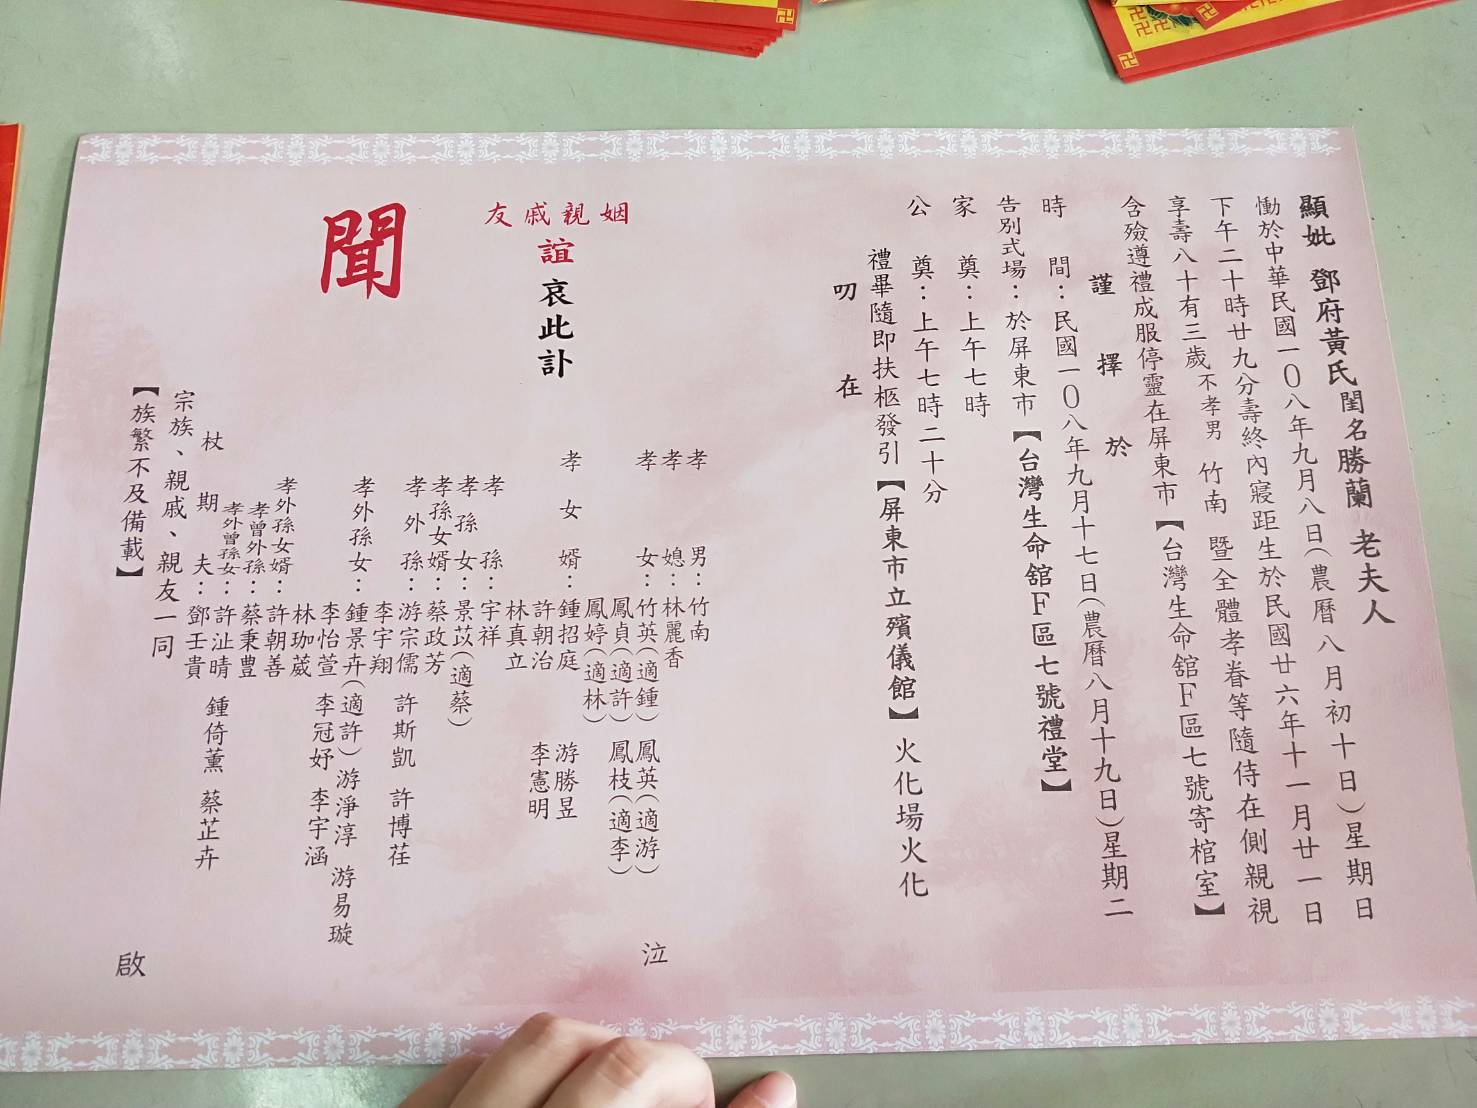 顯妣 鄧府黃氏閨名勝蘭 老夫人
慟於中華民國一〇八年九月八日(農曆八月初十日)星期日
下午二十時廿九分壽終內寢距生於民國廿六年十一月廿一日
享壽八十有三歲不孝男 竹南 暨全體孝眷等隨侍在側親視
含殮遵禮成服停靈在屏東市【台灣生命舘F區七號寄棺室】
謹擇於
時間:民國一〇八年九月十七日(農曆八月十九日)星期二
告別式場:於屏東市【台灣生命舘F區七號禮堂】
家奠:上午七時
公奠:上午七時二十分
禮畢隨即扶柩發引【屏東市立殯儀館】火化場火化
叨在
姻親戚友
誼 哀此訃
聞
孝男:竹南
孝媳:林麗香
孝女:竹英(適鍾) 鳳英(適游)
鳳貞(適許) 鳳枝(適李)
鳳婷(適林)
孝女婿:鍾招庭 游勝昱
許朝治 李憲明
林真立
孝孫:宇祥
孝孫女:景苡(適蔡)
孝孫女婿:蔡政芳
孝外孫:游宗儒 許斯凱 許博荏
李宇翔
孝外孫女:鍾景卉(適許) 游淨淳 游易璇
李怡萱 李冠妤 李宇涵
林珈葳
孝外孫女婿:許朝善
孝曾外孫:蔡秉豊
孝外曾孫女:許沚晴 鍾倚薰 蔡芷卉
杖期夫:鄧壬貴
宗族、親戚、親友一同
【族繁不及備載】
泣
啟